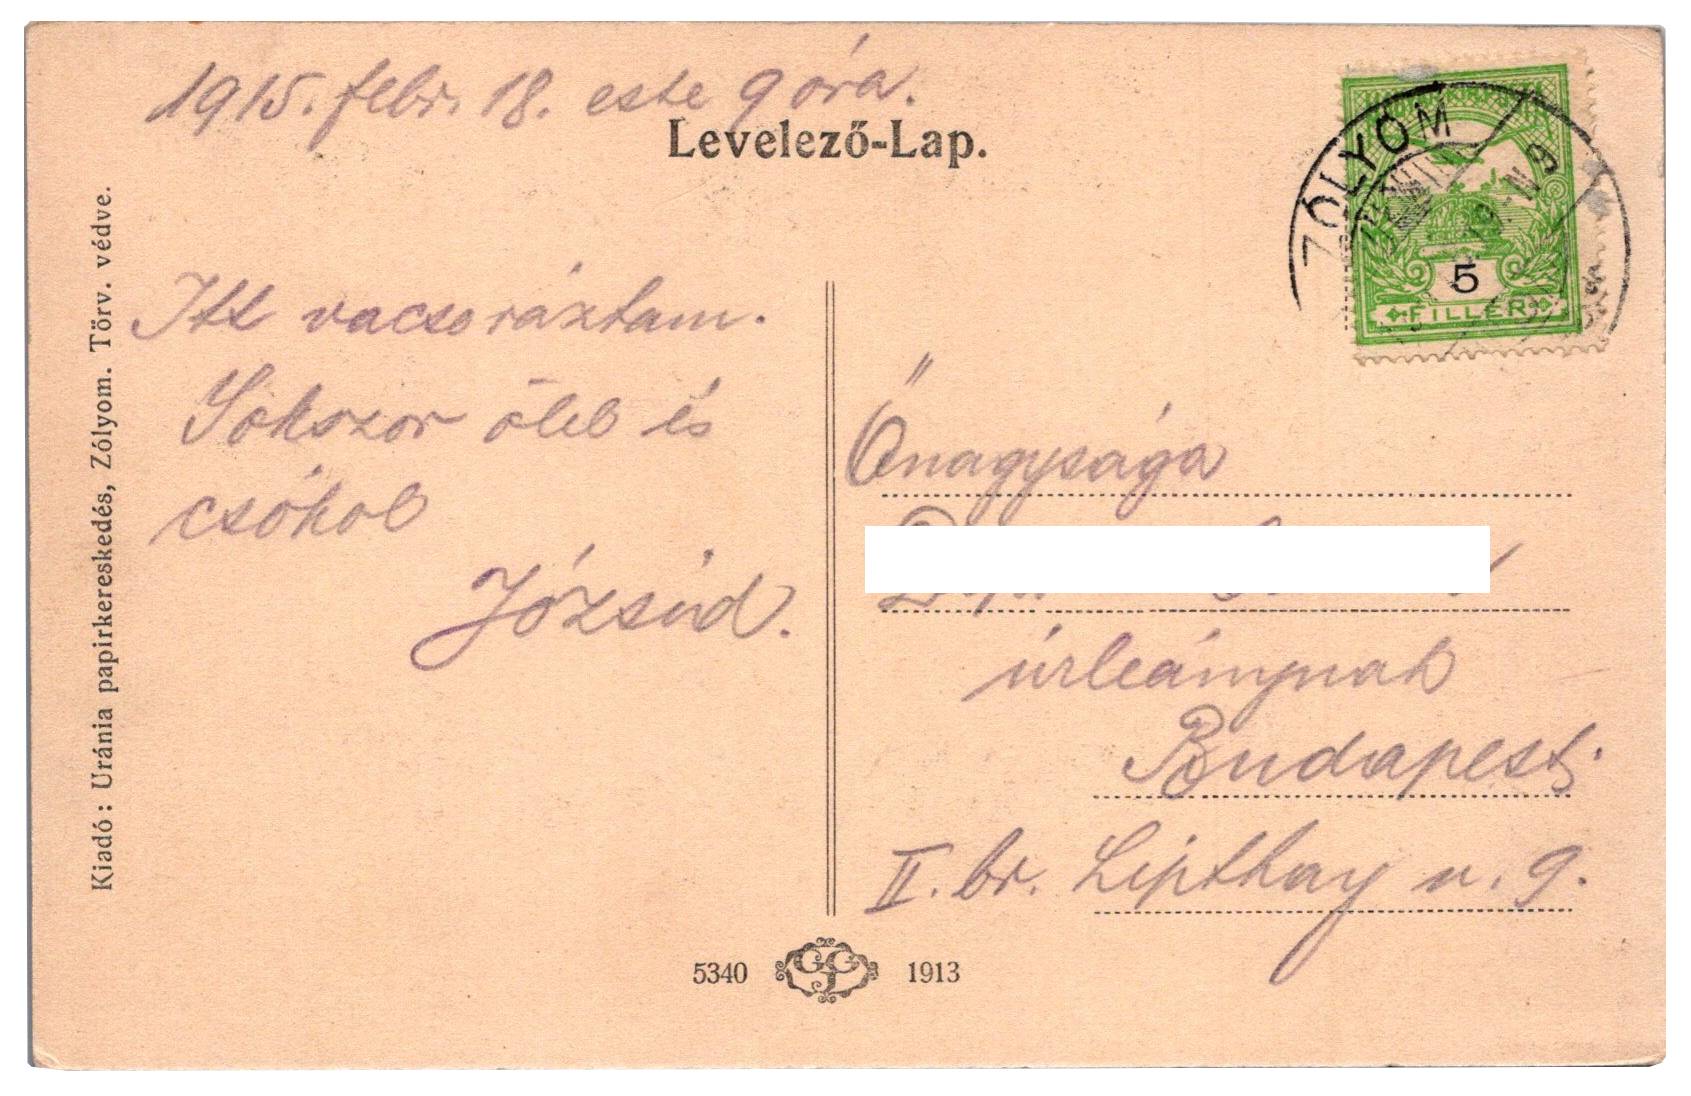 1915. febr. 18. este 9 óra.
Levelező-Lap.
ZÓLYOM
5
FILLÉR
Itt vacsoráztam.
Sokszor ölel és
csókol
Józsid.
Őnagysága
úrleánynak
Budapest.
II. br. Lipthay u. 9.
Kiadó: Uránia papirkereskedés, Zólyom. Törv. védve.
5340
1913